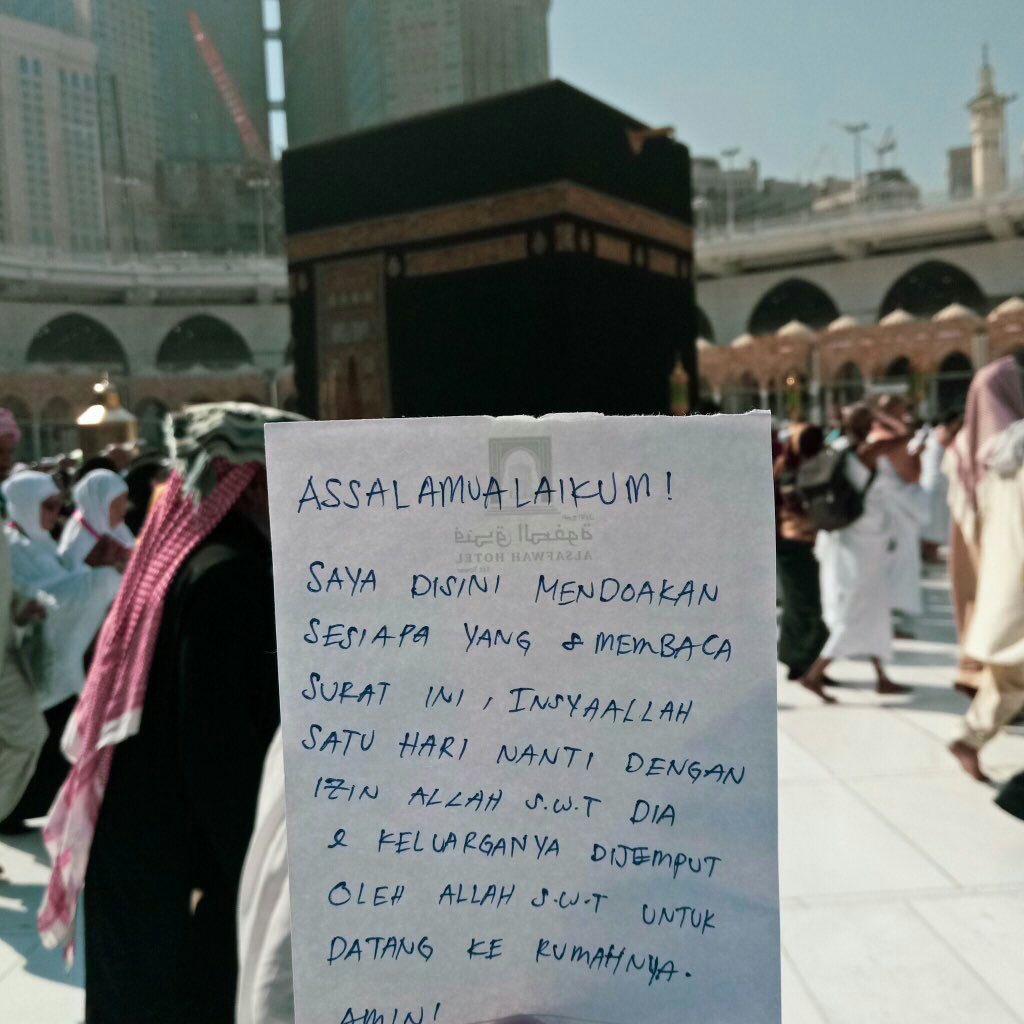 ASSALAMUALAIKUM!
فندق الصفوة
ALSAFWAH HOTEL
SAYA DISINI MENDOAKAN
SESIAPA YANG & MEMBACA
SURAT INI, INSYAALLAH
SATU HARI NANTI DENGAN
IZIN ALLAH S.W.T DIA
& KELUARGANYA DIJEMPUT
OLEH ALLAH S.W.T UNTUK
DATANG KE RUMAHNYA.
AMIN!